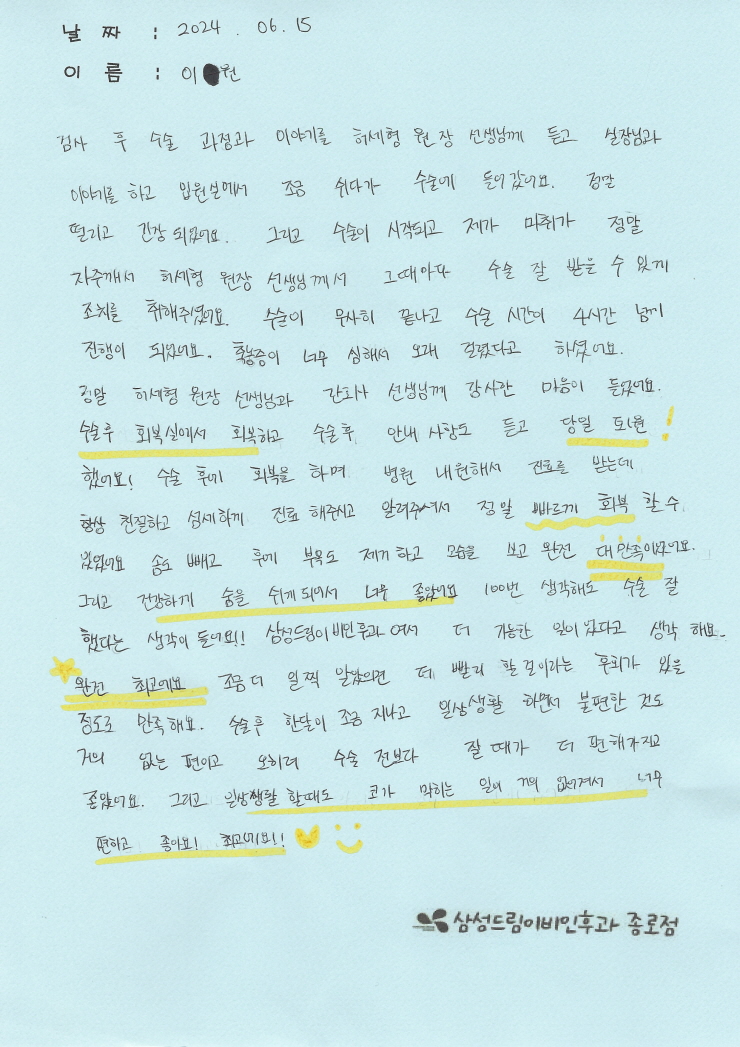 날 짜 : 2024. 06. 15
이 름 : 이 원
검사 후 수술 과정과 이야기를 허세형 원장 선생님께 듣고 실장님과
이야기를 하고 입원실에서 조금 쉬다가 수술에 들어갔어요. 정말
떨리고 긴장 되었어요. 그리고 수술이 시작되고 제가 마취가 정말
자주깨서 허세형 원장 선생님께서 그때마다 수술 잘 받을 수 있게
조치를 취해주셨어요. 수술이 무사히 끝나고 수술 시간이 4시간 넘게
진행이 되었어요. 축농증이 너무 심해서 오래 걸렸다고 하셨어요.
정말 허세형 원장 선생님과 간호사 선생님께 감사한 마음이 들었어요.
수술후 회복실에서 회복하고 수술후 안내 사항도 듣고 당일 퇴원!
했어요! 수술 후에 회복을 하며 병원 내원해서 진료를 받는데
항상 친절하고 섬세하게 진료 해주시고 알려주셔서 정말 빠르게 회복 할 수
있었어요 솜도 빼고 후에 부목도 제거하고 모습을 보고 완전 대만족이었어요.
그리고 건강하게 숨을 쉬게 되어서 너무 좋았어요 100번 생각해도 수술 잘
했다는 생각이 들어요!! 삼성드림이비인후과 여서 더 가능한 일이 있다고 생각 해요.
완전 최고에요 조금 더 일찍 알았으면 더 빨리 할걸이라는 후회가 있을
정도로 만족해요. 수술후 한달이 조금 지나고 일상생활 하면서 불편한 것도
거의 없는 편이고 오히려 수술 전보다 잘 때가 더 편해가지고
좋았어요. 그리고 일상생활 할때도 코가 막히는 일이 거의 없어져서 너무
편하고 좋아요! 최고에요!!
삼성드림이비인후과 종로점